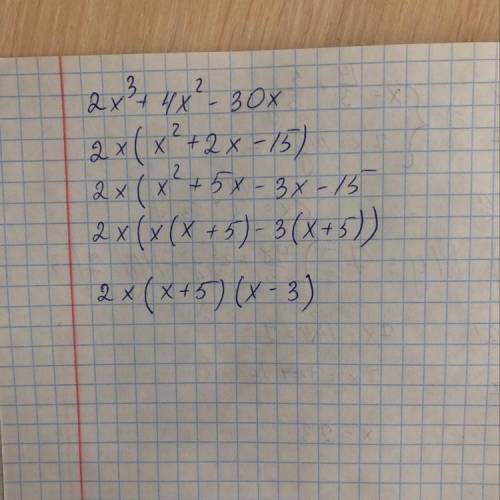 2x³ + 4x² - 30x
2x(x² + 2x - 15)
2x(x² + 5x - 3x - 15
2x(x(x + 5) - 3(x + 5))
2x(x + 5)(x - 3)